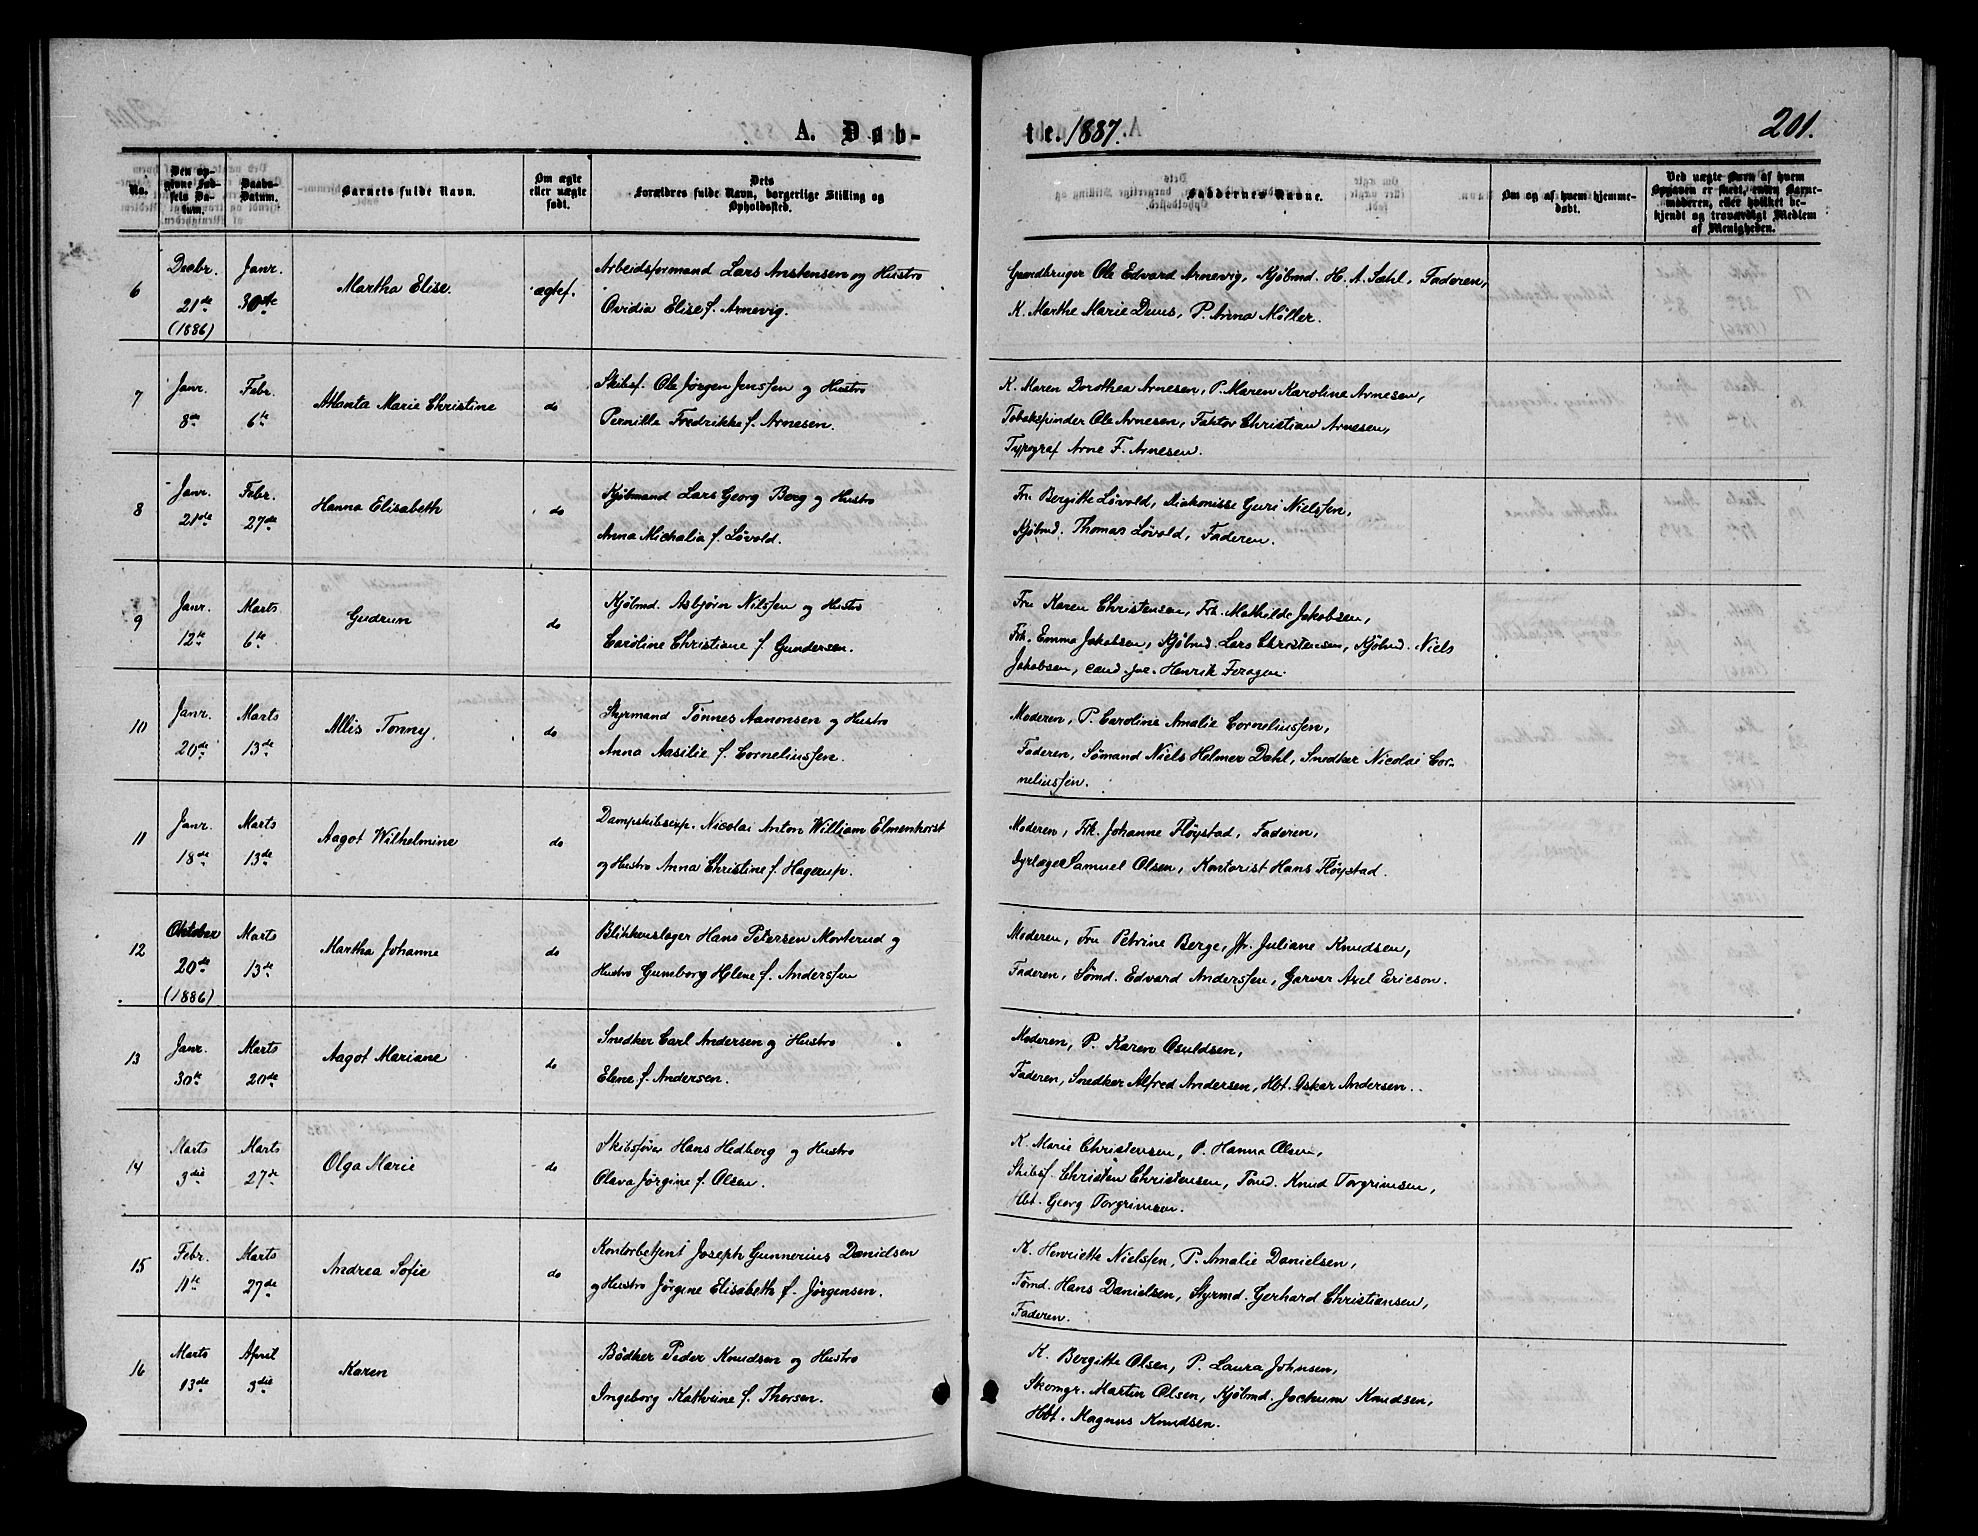 A. Døb-
te. 1887.
201.
No.
Den op-
givne Fød-
sels Da-
tum.
Daabs-
Datum.
Barnets fulde Navn.
Om ægte
eller uægte
født.
Dets
Forældres fulde Navn, borgerlige Stilling og
Opholdssted.
Faddernes Navne.
Om og af hvem hjemme-
døbt.
Ved uægte Barn af hvem
Opgaven er skedt, enten Barne-
moderen, eller hvilket be-
kjendt og troværdigt Medlem
af Menigheden.
6
Decbr.
21de
(1886)
Janr.
30te
Martha Elise.
ægtef.
Arbeidsformand Lars Anstensen og Hustro
Ovidia Elise f. Arnevig.
Gaardbruger Ole Edvard Arnevig, Kjøbmd. H. A. Sæhl, Faderen,
K. Marthe Marie Duus, P. Anna Møller.
7
Janr.
8de
Febr.
6te
Atlanta Marie Christine
do
Skibsf. Ole Jørgen Jenssen og Hustro
Pernilla Fredrikke f. Arnesen.
K. Maren Dorothea Arnesen, P. Maren Karoline Arnesen,
Tobakspinder Ole Arnesen, Faktor Christian Arnesen,
Typograf Arne F. Arnesen.
8
Janr.
21de
Febr.
27de
Hanna Elisabeth
do
Kjøbmand Lars Georg Berg og Hustro
Anna Michalia f. Løvold.
Fru Bergitte Løvold, Diakonisse Guri Nielssen,
Kjøbmd. Thomas Løvold, Faderen.
9
Janr.
12te
Marts
6te
Gudrun
do
Kjøbmd. Asbjørn Nilssen og Hustro
Caroline Christiane f. Gundersen.
Fru Karen Christensen, Frk. Mathilde Jakobsen,
Frk. Emma Jakobsen, Kjøbmd. Lars Christensen, Kjøbmd. Niels
Jakobsen, cand. jur. Henrik Feragen.
10
Janr.
20de
Marts
13de
Allis Tonny
do
Styrmand Tønnes Aanonsen og Hustro
Anna Aasilie f. Corneliussen.
Moderen, P. Caroline Amalie Corneliussen,
Faderen, Sømand Niels Helmer Dahl, Snedker Nicolai Cor-
neliussen.
11
Janr.
18de
Marts
13de
Aagot Wilhelmine
do
Dampskibsexp. Nicolai Anton William Elmenhorst
og Hustro Anna Christine f. Hagerup.
Moderen, Frk. Johanne Fløystad, Faderen,
Dyrlæge Samuel Olsen, Kontorist Hans Fløystad.
12
Oktober
20de
(1886)
Marts
13de
Martha Johanne
do
Blikkenslager Hans Petersen Morterud og
Hustro Guneborg Helene f. Anderssen
Moderen, Fru Petrine Berge, Jfr. Juliane Knudsen,
Faderen, Sømd. Edvard Anderssen, Garver Axel Ericson.
13
Janr.
30te
Marts
20de
Aagot Mariane
do
Snedker Carl Andersen og Hustro
Elene f. Andersen.
Moderen, P. Karen Osuldsen,
Faderen, Snedker Alfred Andersen, Hbt. Oskar Andersen.
14
Marts
3die
Marts
27de
Olga Marie
do
Skibsfører Hans Hedberg og Hustro
Olava Jørgine f. Olsen.
K. Marie Christensen, P. Hanna Olsen,
Skibsf. Christen Christensen, Tømd. Knud Torgrimsen,
Hbt. Georg Torgrimsen.
15
Febr.
11te
Marts
27de
Andrea Sofie
do
Kontorbetjent Joseph Gunnerius Danielsen
og Hustro Jørgine Elisabeth f. Jørgensen.
K. Henriette Nielssen, P. Amalie Danielsen,
Tømd. Hans Danielsen, Styrmd. Gerhard Christiansen,
Faderen.
16
Marts
13de
April
3die
Karen
Bødker Peder Knudsen og Hustro
Ingeborg Kathrine f. Thorsen.
K. Bergitte Olsen, P. Laura Johnsen,
Skomgr. Martin Olsen, Kjøbmd. Jochum Knudsen,
Hbt. Magnus Knudsen.